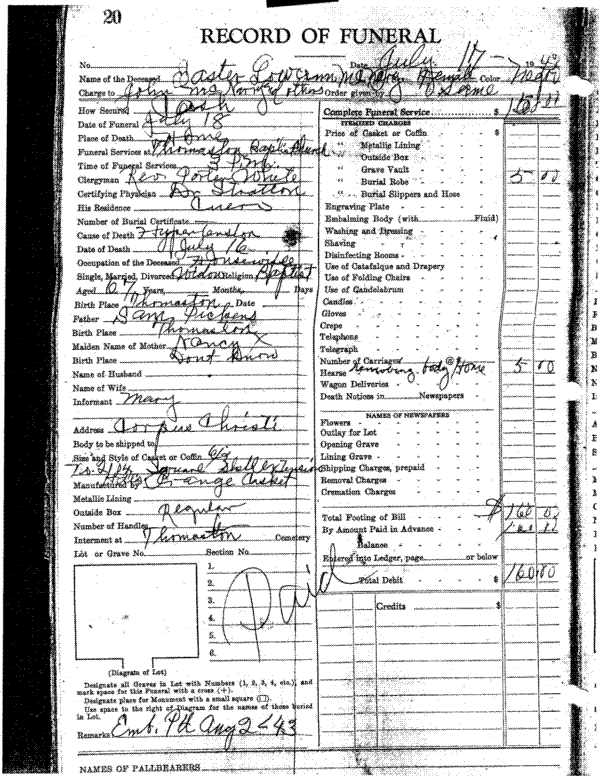 20
RECORD OF FUNERAL
No. Date July 17 19
Name of the Deceased Easter Color Negro
Charge to John Mc others Order given by Same
How Secured Cash
Date of Funeral July 18
Place of Death Home
Funeral Services at Thomaston Baptist Church
Time of Funeral Services 3 P.M.
Clergyman Rev. Porter White
Certifying Physician Dr Stratton
His Residence Cuero
Number of Burial Certificate
Cause of Death Hypertension
Date of Death July 16
Occupation of the Deceased Housewife
Single, Married, Divorced Widow Religion Baptist
Aged 67 Years, Months, Days
Birth Place Thomaston Date
Father Sam Pickens
Birth Place Thomaston
Maiden Name of Mother Nancy X
Birth Place Dont Know
Name of Husband
Name of Wife
Informant Mary
Address Corpus Christi
Body to be shipped to
Size and Style of Casket or Coffin 6/3
Square Shell Extension
Manufactured by Orange Casket
Metallic Lining
Outside Box Regular
Number of Handles 6
Interment at Thomaston Cemetery
Lot or Grave No. Section No.
1.
2.
3.
4.
5.
6.
Paid
(Diagram of Lot)
Designate all Graves in Lot with Numbers (1, 2, 3, 4, etc.), and
mark space for this Funeral with a cross (+).
Designate place for Monument with a small square (□).
Use space to the right of Diagram for the names of those buried
in Lot.
Remarks Emb. Pd Aug 2 43
NAMES OF PALLBEARERS
Complete Funeral Service $
ITEMIZED CHARGES
Price of Casket or Coffin $
" Metallic Lining
" Outside Box
" Grave Vault
" Burial Robe 5 00
" Burial Slippers and Hose
Engraving Plate
Embalming Body (with Fluid)
Washing and Dressing
Shaving
Disinfecting Rooms
Use of Catafalque and Drapery
Use of Folding Chairs
Use of Candelabrum
Candles
Gloves
Crepe
Telephone
Telegraph
Number of Carriages @
Hearse body Home 5 00
Wagon Deliveries
Death Notices in Newspapers
NAMES OF NEWSPAPERS
Flowers
Outlay for Lot
Opening Grave
Lining Grave
Shipping Charges, prepaid
Removal Charges
Cremation Charges
Total Footing of Bill $ 160 00
By Amount Paid in Advance 160 00
Balance
Entered into Ledger, page or below
Total Debit $ 160.00
Credits $